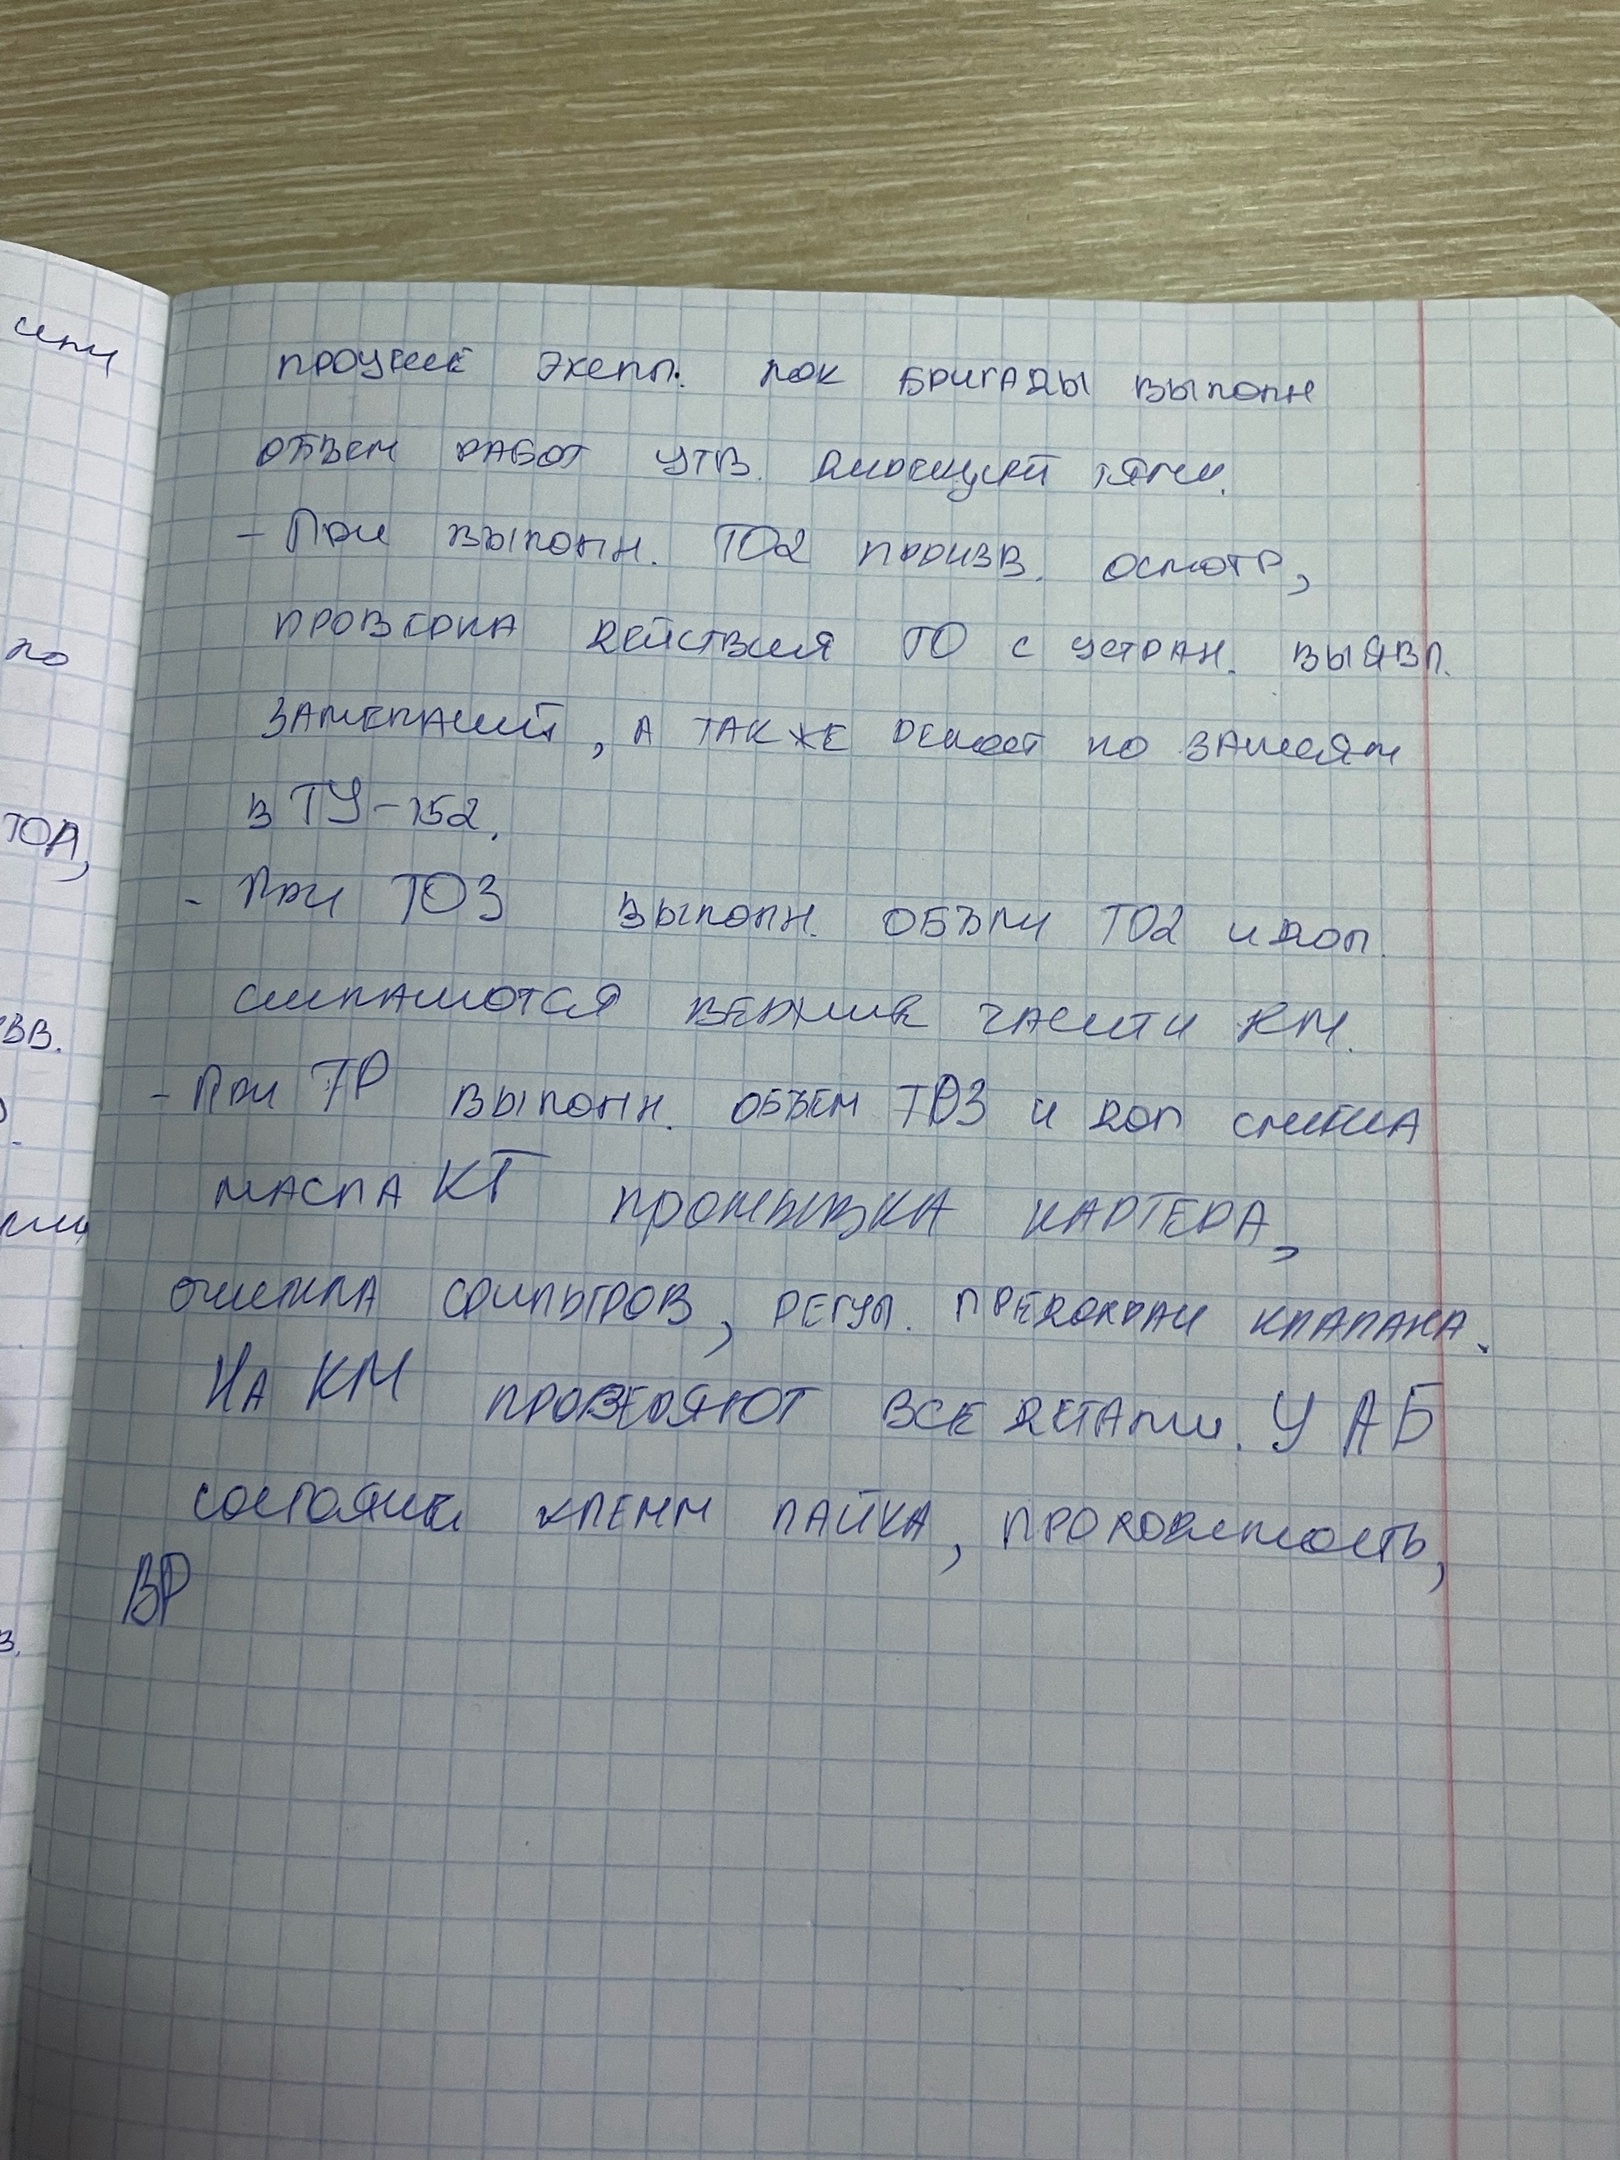 сети
процессе экспл. лок бригады выполн
объем работ утв. дирекцией тяги.
- При выполн. ТО2 произв. осмотр,
по
проверка действия ТО с устран. выявл.
замечаний, а также ремонт по записям
в ТУ-152.
ТОА,
- При ТО3 выполн. объем ТО2 и доп.
снимаются верхние части КМ.
- При ТР выполн. объем ТО3 и доп смена
масла КТ промывка картера,
очистка фильтров, регул. предохран клапана.
На КМ проверяют все детали. У АБ
состояние клемм пайка, проходимость,
ВР